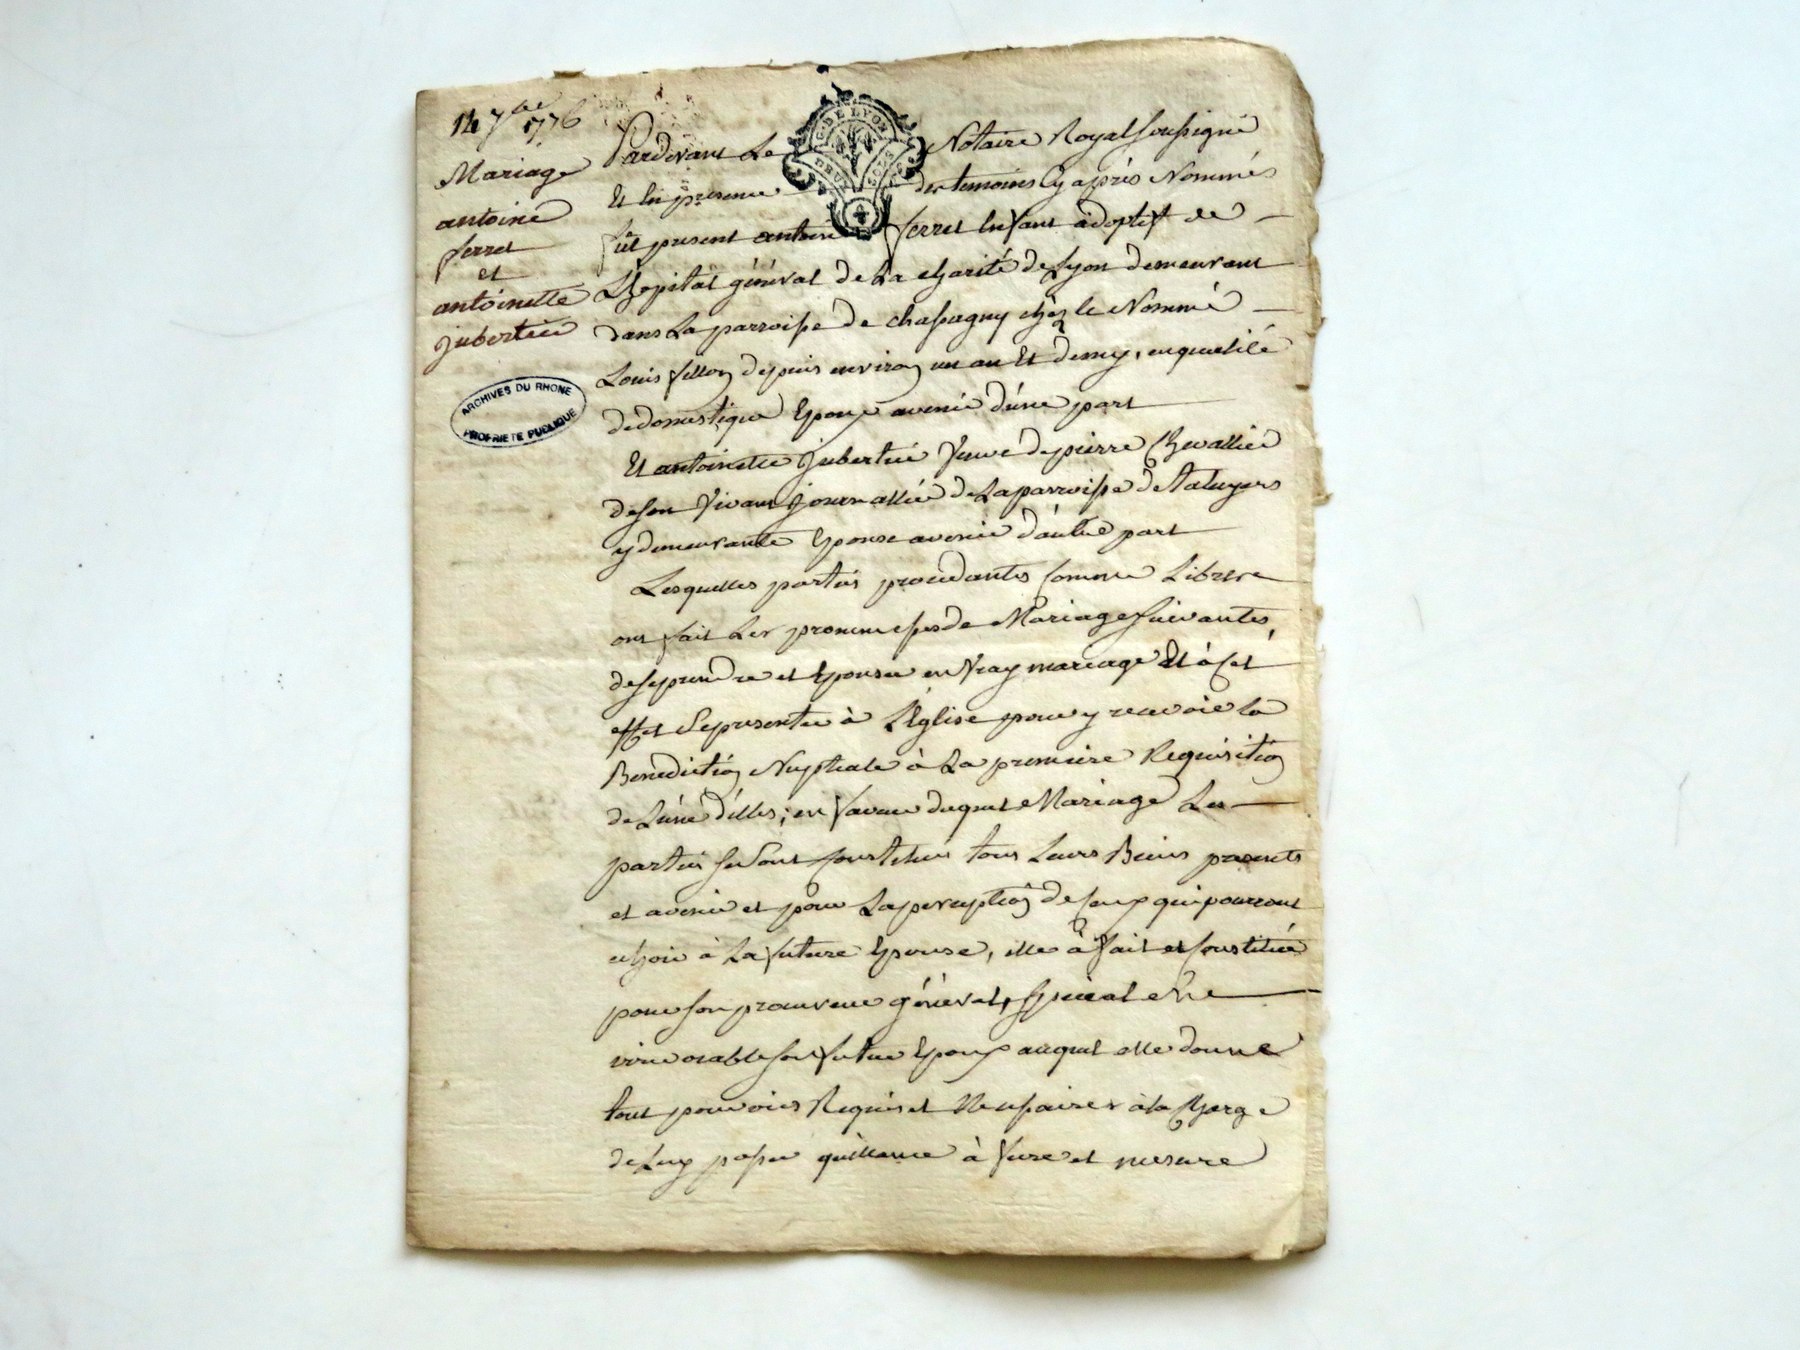 14 7bre 1776
Mariage
antoine
ferret
et
antoinette
jubertier
ARCHIVES DU RHONE
PROPRIETE PUBLIQUE
G. DE LYON
DEUX SOLS
Pardevant Le Notaire Royal soussigné
Et En presence des temoins Cy après Nommés
fût present antoine ferret Enfant adoptif de
L'hopital général de La charité de Lyon demeurant
dans La parroisse de chassagny chéz le Nommé
Louis fillon depuis environ un an Et demy, en qualité
de domestique Epoux avenir d'úne part
Et antoinette jubertier Veuve de pierre Chevallier
de son Vivant journallier de La parroisse de taluyers
y demeurante Epouse avenir d'autre part
Lesquelles parties procedantes Comme Libres
ont fait Les promesses de Mariage suivantes,
de se prendre et Epouser en Vray mariage Et à Cet
effet se presenter à L'Église pour y recevoir la
Benediction Nuptiale à La premiere Requisition
de L'úne d'elles; en faveur duquel Mariage Les
parties se sont Constitués tous Leurs Biens presents
et avenir et pour La perception de Ceux qui pourront
echoir à La future Epouse, elle à fait et Constitué
pour son procureur général, special et
irrevocable son futur Epoux auquel elle donne
tout pouvoirs Requis et Necessaires à la Charge
de Luy passer quittance à fure et mesure